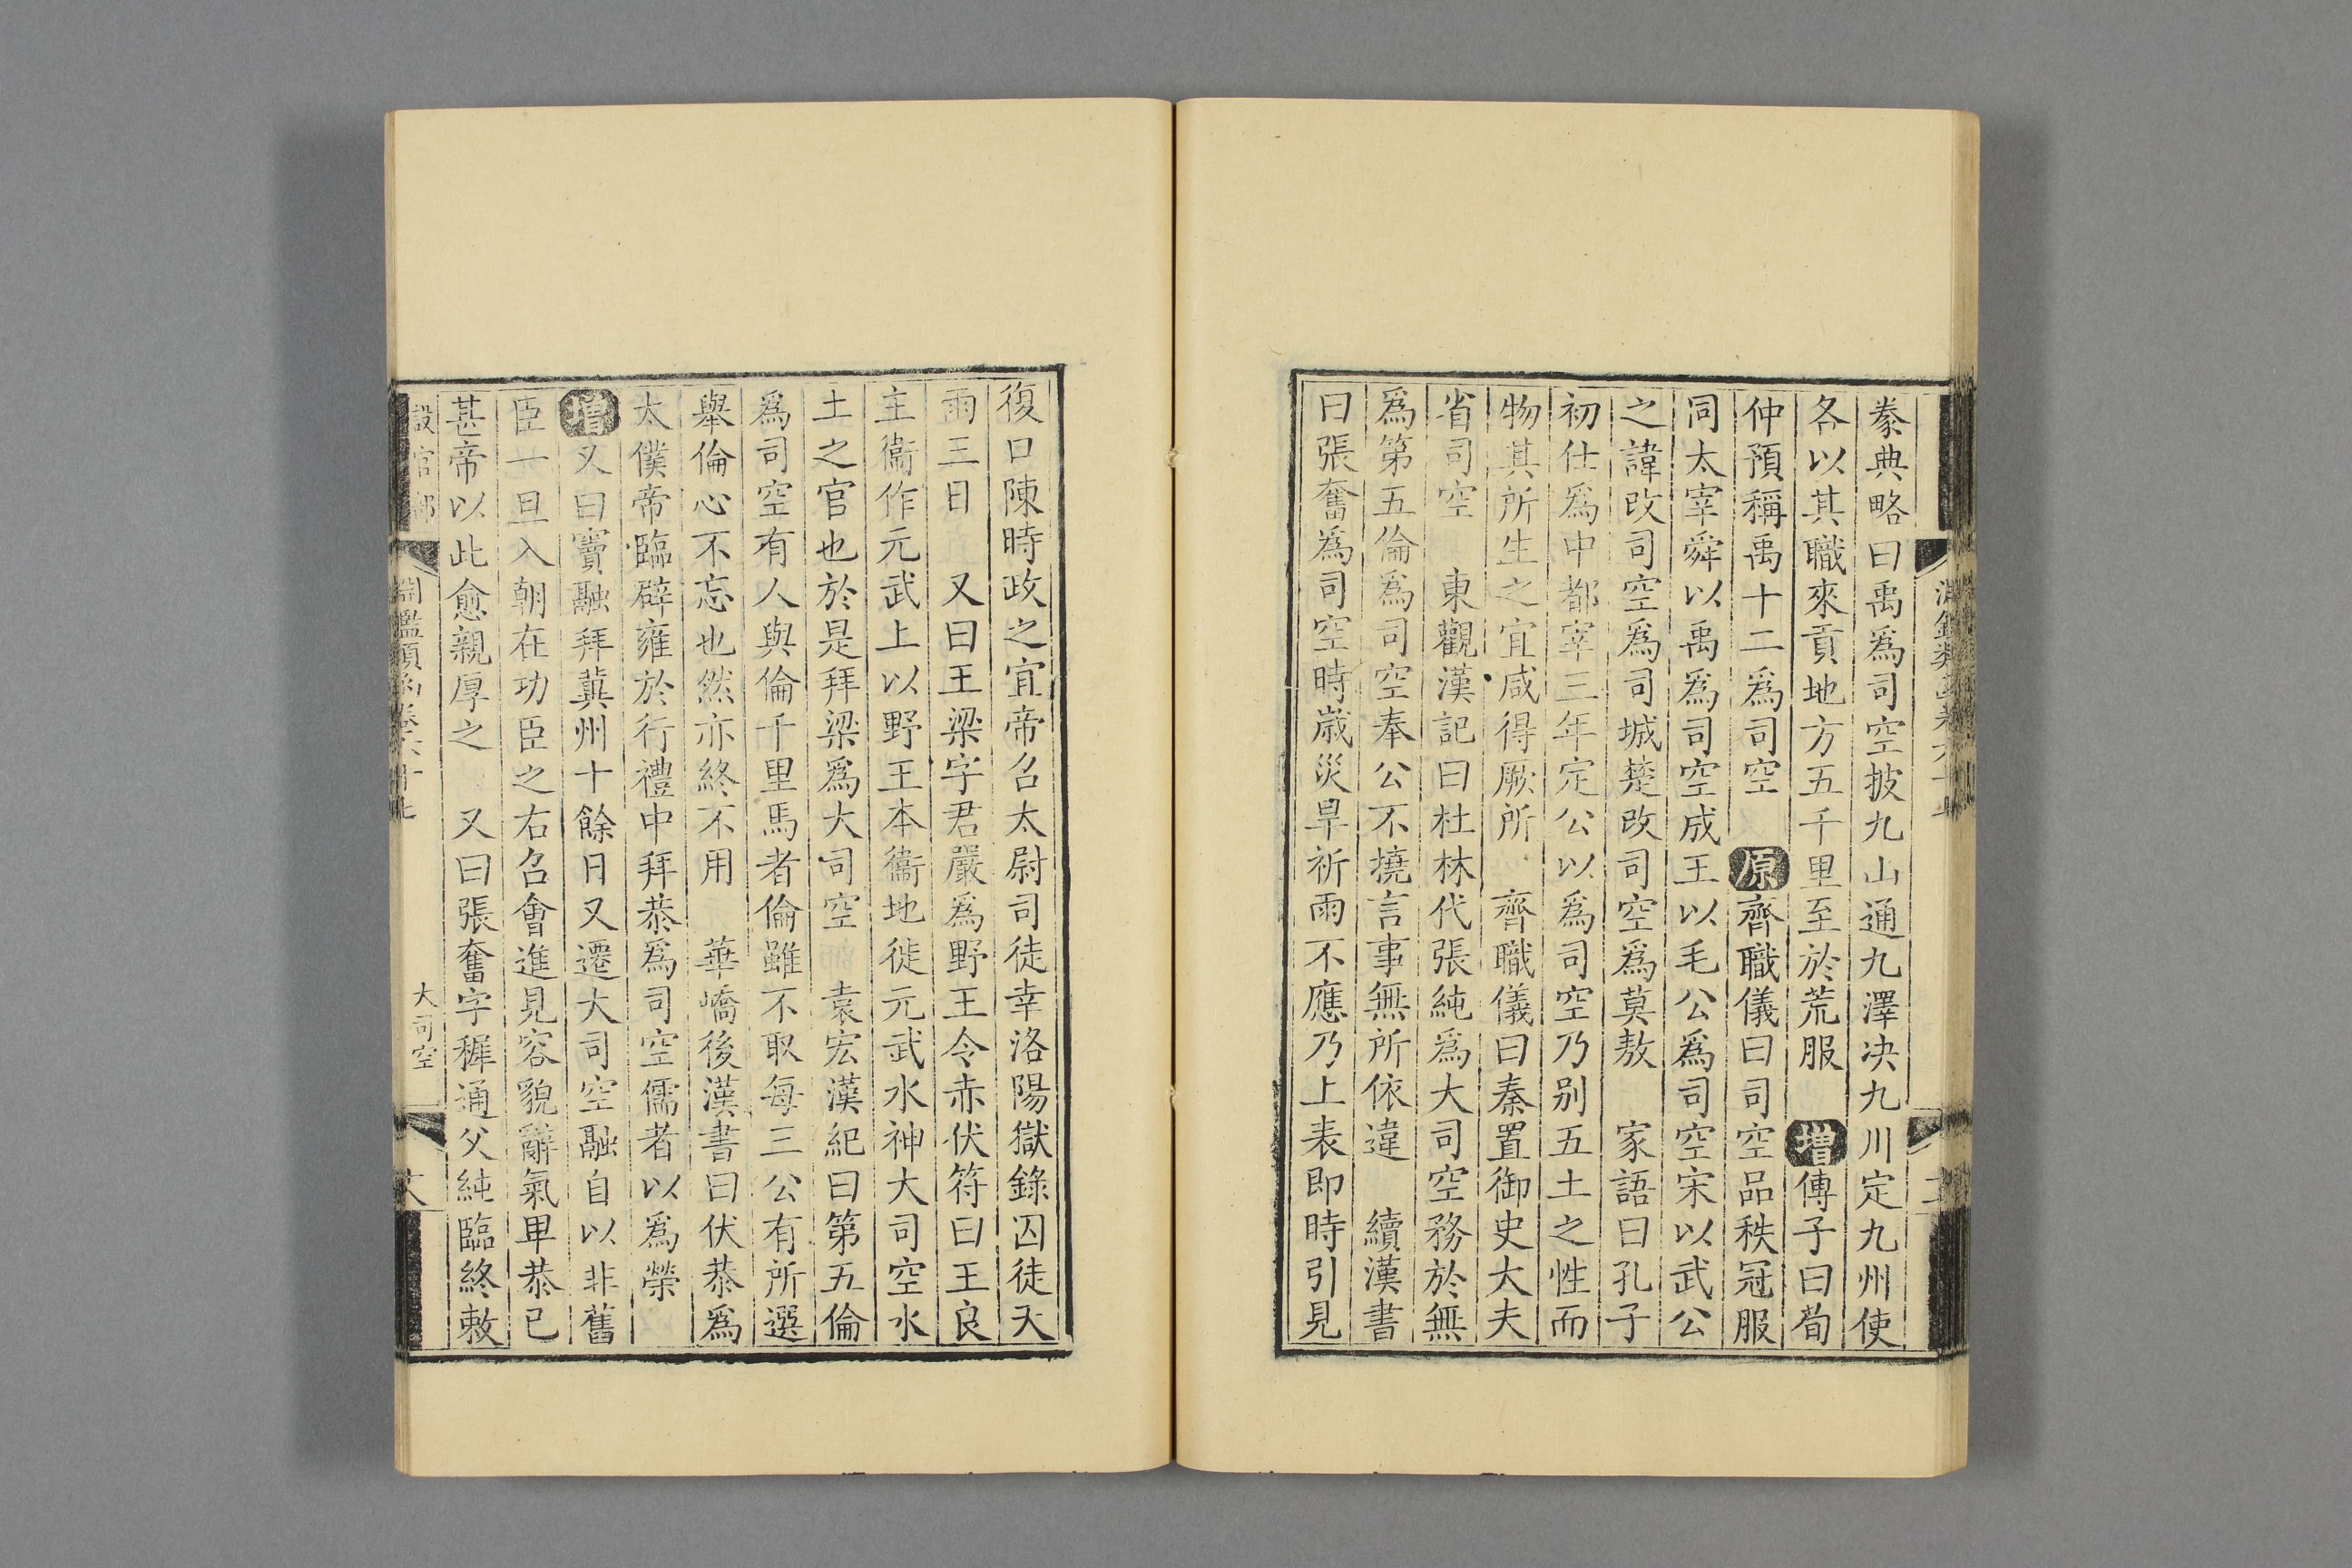 豢典略曰禹爲司空披九山通九澤决九川定九州使
各以其職來貢地方五千里至於荒服 增傳子曰荀
仲預稱禹十二爲司空 原齊職儀曰司空品秩冠服
同太宰舜以禹爲司空成王以毛公爲司空宋以武公
之諱改司空爲司城楚改司空爲莫敖 家語曰孔子
初仕爲中都宰三年定公以爲司空乃别五土之性而
物其所生之宜咸得厥所 齊職儀曰秦置御史大夫
省司空 東觀漢記曰杜林代張純爲大司空務於無
爲第五倫爲司空奉公不撓言事無所依違 續漢書
曰張奮爲司空時歲災旱祈雨不應乃上表即時引見
復口陳時政之宜帝召太尉司徒幸洛陽獄錄囚徒天
雨三日 又曰王梁字君嚴爲野王令赤伏符曰王良
主衞作元武上以野王本衞地徙元武水神大司空水
土之官也於是拜梁爲大司空 袁宏漢紀曰第五倫
爲司空有人與倫千里馬者倫雖不取每三公有所選
舉倫心不忘也然亦終不用 華嶠後漢書曰伏恭爲
太僕帝臨辟雍於行禮中拜恭爲司空儒者以爲榮
增又曰竇融拜冀州十餘日又遷大司空融自以非舊
臣一旦入朝在功臣之右召會進見容貌辭氣卑恭已
甚帝以此愈親厚之 又曰張奮字穉通父純臨終敕
設官部
淵鑑類函卷六十七
大司空